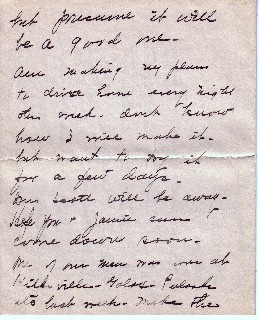 but presume it will
be a good one.
Am making my plans
to drive home every night
this week. don't know
how I will make it.
but want to try it
for a few days.
Scott will be away.
Hope you & Jamie can
come down soon.
of our men was over at
ville
last week. Make the